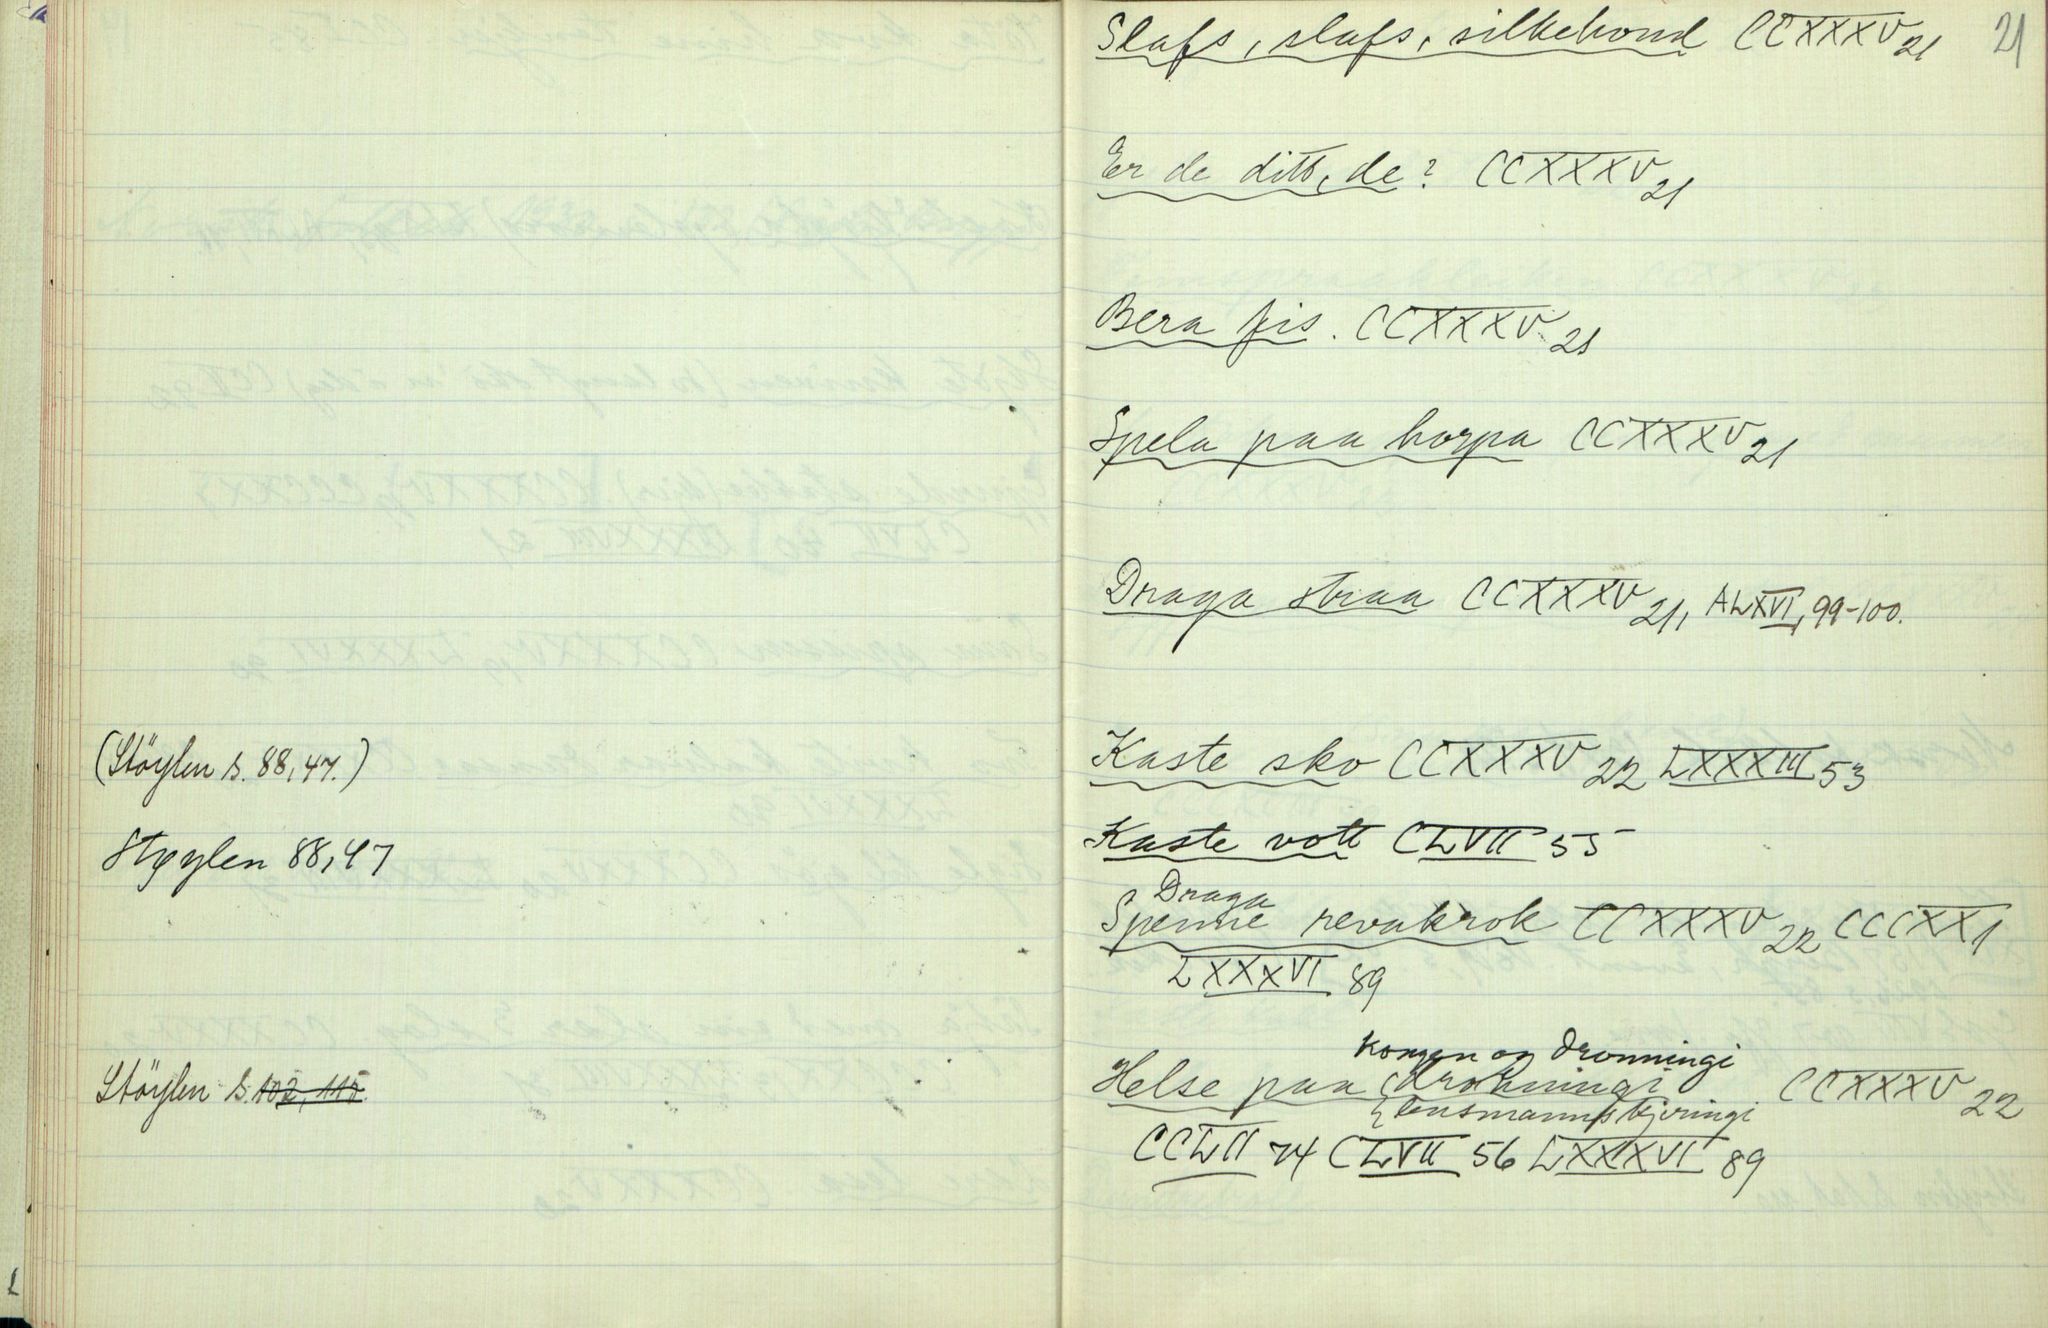 (Støylen s. 88,47.)
Støylen 88,47
Støylen s. 102, 115.
21
Slafs, slafs, silkehond CCXXXV 21
Er de ditt, de? CCXXXV 21
Bera fis. CCXXXV 21
Spela paa horpa CCXXXV 21
Draga straa CCXXXV 21, ALXVI, 99-100.
Kaste sko CCXXXV 22 LXXXIII 53
Kaste vott CLVII 55
Draga
Spenne revakrok CCXXXV 22 CCCXXI
LXXXVI 89
Kongen og dronningi
Helse paa dronningi CCXXXV 22
lensmannskjeringi
CCLII 74 CLVII 56 LXXXVI 89